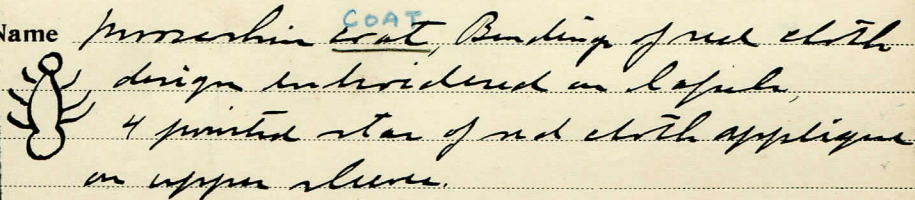 COAT
Name Mooseskin Coat, Binding of red cloth
design embroidered on lapels,
4 pointed star of red cloth applique
on upper sleeve.